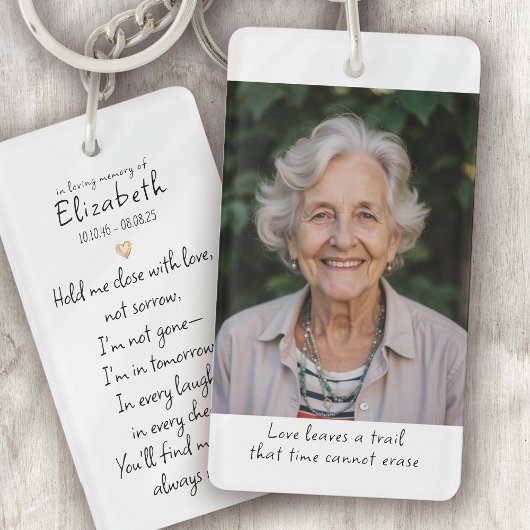 Elizabeth
in loving memory of
Elizabeth
10.10.46 - 08.08.25
Hold me close with love,
not sorrow,
I'm not gone—
I'm in tomorrow
In every laugh
in every che
You'll find m
always
Love leaves a trail
that time cannot erase